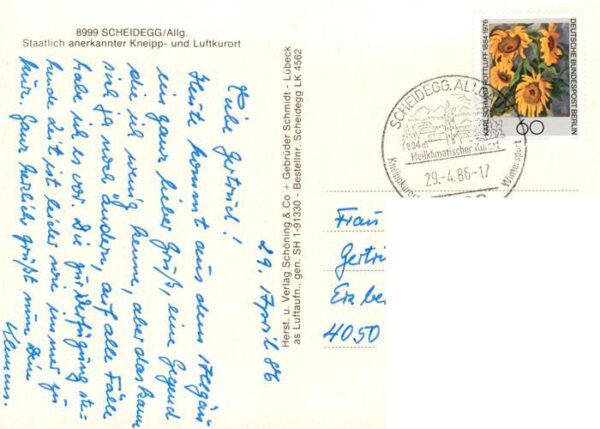 8999 SCHEIDEGG/Allg.
Staatlich anerkannter Kneipp- und Luftkurort
29. April 86
Liebe Gertrud!
Heute kommt aus dem Allgäu
ein ganz lieber Gruß, eine Gegend
die ich wenig kenne, aber das kann
sich ja noch ändern, auf alle Fälle
habe ich es vor. Die zur Verfügung ste-
hende Zeit ist leider wie immer zu
kurz. Ganz herzlich grüßt nun Dein
Klemens.
Herst. u. Verlag Schöning & Co + Gebrüder Schmidt - Lübeck
as Luftaufn., gen. SH 1-91330 - Bestellnr. Scheidegg LK 4562
SCHEIDEGG, ALL
804m
Heilklimatischer Kurort
29.-4.86-17
Kneippkuror
Wintersport
KARL SCHMIDT-ROTTLUFF 1884-1976
DEUTSCHE BUNDESPOST BERLIN
60
Frau
Gertr
4050